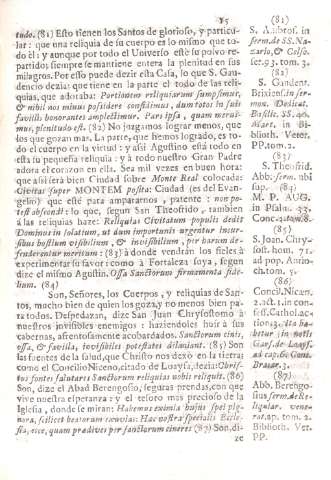 85
tudo. (81) Esto tienen los Santos de glorioso, y particu-
lar: que una reliquia de su cuerpo es lo mismo que to-
do èl: y aunque por todo el Universo estè su polvo re-
partido; siempre se mantiene entera la plenitud en sus
milagros. Por esso puede dezir esta Casa, lo que S. Gau-
dencio dezia: que tiene en la parte el todo de las reli-
quias, que adoraba: Portiunem reliquiarum sumpsimus,
& nihil nos minus possidere confidimus, dum totos in suis
favillis honorantes amplectimur. Pars ipsa, quam merui-
mus, plenitudo est. (82) No juzgamos lograr menos, que
los que gozan mas. La parte, que hemos logrado, es to-
do el cuerpo en la virtud: y assi Agustino està todo en
esta su pequeña reliquia: y à todo nuestro Gran Padre
adora el corazon en ella. Sea mil vezes en buen hora:
que assi serà bien Ciudad sobre Monte Real colocada:
Civitas super MONTEM posita: Ciudad (es del Evan-
gelio) que estè para ampararnos, patente: non po-
test abscondi: lo que, segun San Theofrido, tambien
à las reliquias haze: Reliquias Civitatum populis dedit
Dominus in solatium, ut dum importunis urgentur incur-
sibus hostium visibilium, & invisibilium, per harum de-
fenderentur meritum: (83) à donde vendràn los fieles à
experimentar su favor como à Fortaleza suya, segun
dize el mismo Agustin. Ossa Sanctorum firmamenta fide-
lium. (84)
Son, Señores, los Cuerpos, y reliquias de San-
tos, mucho bien de quien los goza, y no menos bien pa-
ra todos. Despedazan, dize San Juan Chrysostomo à
nuestros invisibles enemigos: haziendoles huir à sus
cabernas, afrentosamente acobardados. Sanctorum cinis,
ossa, & favilla, invisibiles potestates dilaniant. (85) Son
las fuentes de la salud, que Christo nos dexò en la tierra:
como el Concilio Niceno, citado de Loaysa, dezia: Chris-
tus fontes salutares Sanctorum reliquias nobis reliquit. (86)
Son, dize el Abad Berengosio, seguras prendas, con que
vive nuestra esperanza: y el tesoro mas precioso de la
Iglesia, donde se miran: Habemus eximia hujus spei pig-
nora, scilicet beatorum exuvias: Hac nostra specialis Eccle-
sia, vive, quam prædives per sanctorum cineres (87) Son, di-
ze
(81)
S. Ambros. in
serm. de SS. Na-
zario, & Celso.
serm. 93. tom. 3.
(82)
S. Gaudent.
Brixiens. in ser-
mon. Dedicat.
Basilic. SS. 40.
Mart. in Bi-
blioth. Veter.
PP. tom. 2.
(83)
S. Theofrid.
Abb. serm. ubi
sup. (84)
M. P. AUG.
in Psalm. 33.
Conc. 2. tom. 8.
(85)
S. Joan. Chry-
sost. hom. 71.
ad pop. Antio-
ch. tom. 5.
(86)
Concil. Nicæn.
2. act. 1. in con-
fess. Cathol. ac-
tion 3.
(87)
Abb. Berengo-
sius serm. de Re-
liquiar. vene-
rat. ap. tom. 2.
Biblioth. Vet.
PP.